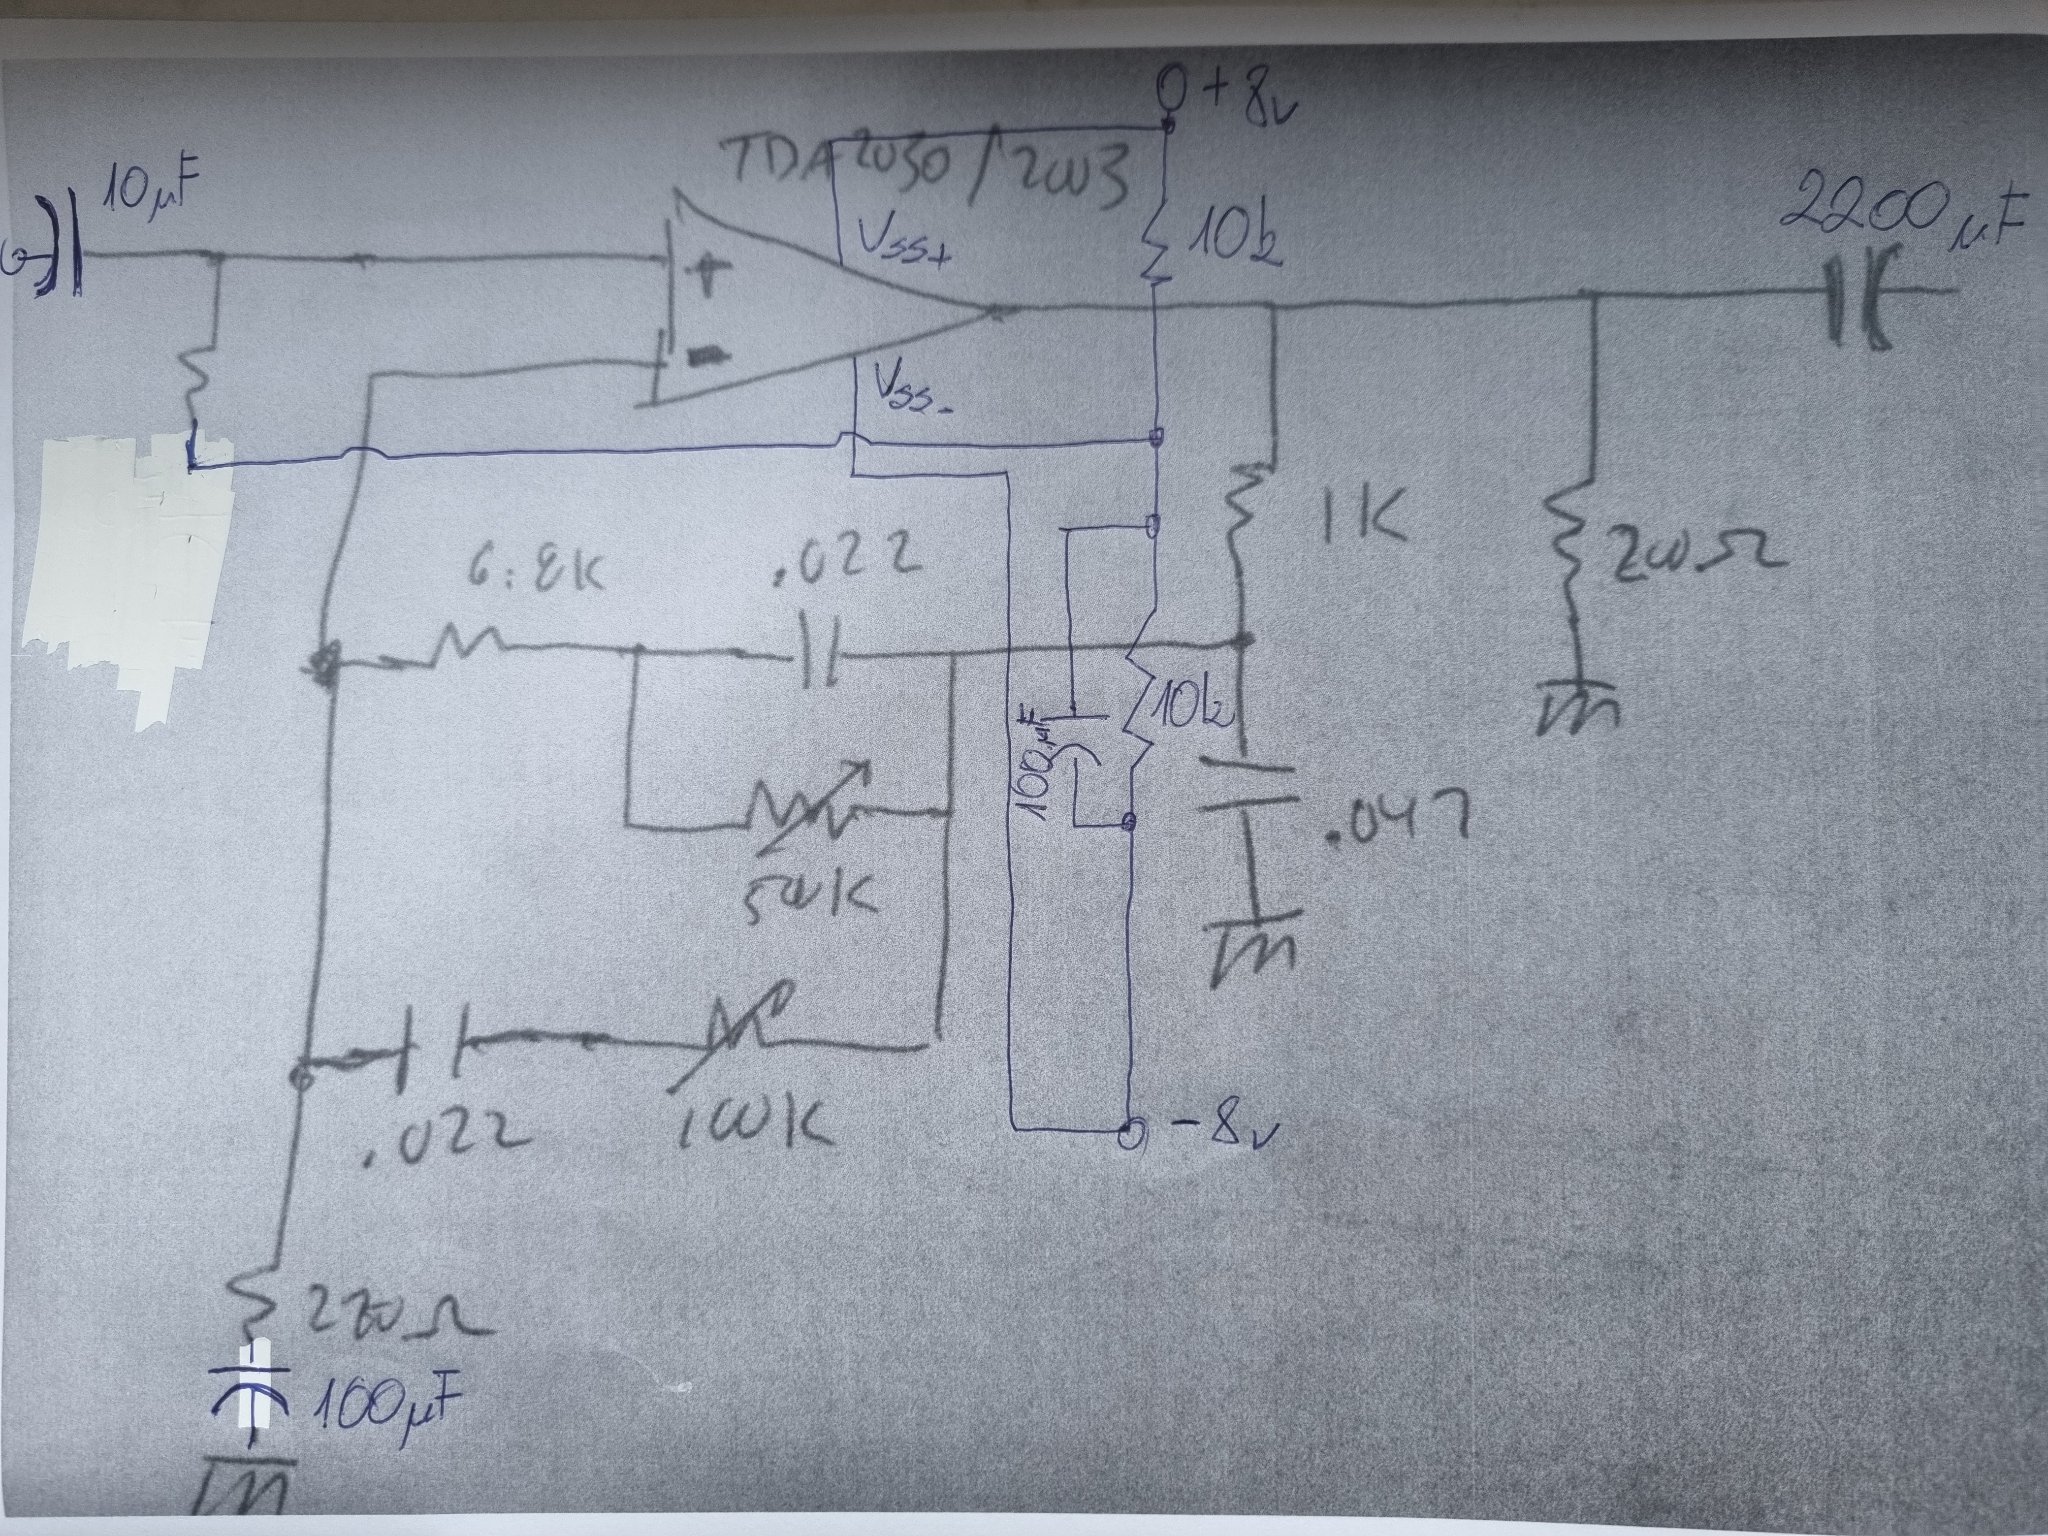 +8v
TDA 2030 / 2003
10µF
2200µF
Vss+
10k
+
-
Vss-
1K
200Ω
6.8K
.022
10k
100µF
.047
50K
-8v
.022
100K
220Ω
100µF